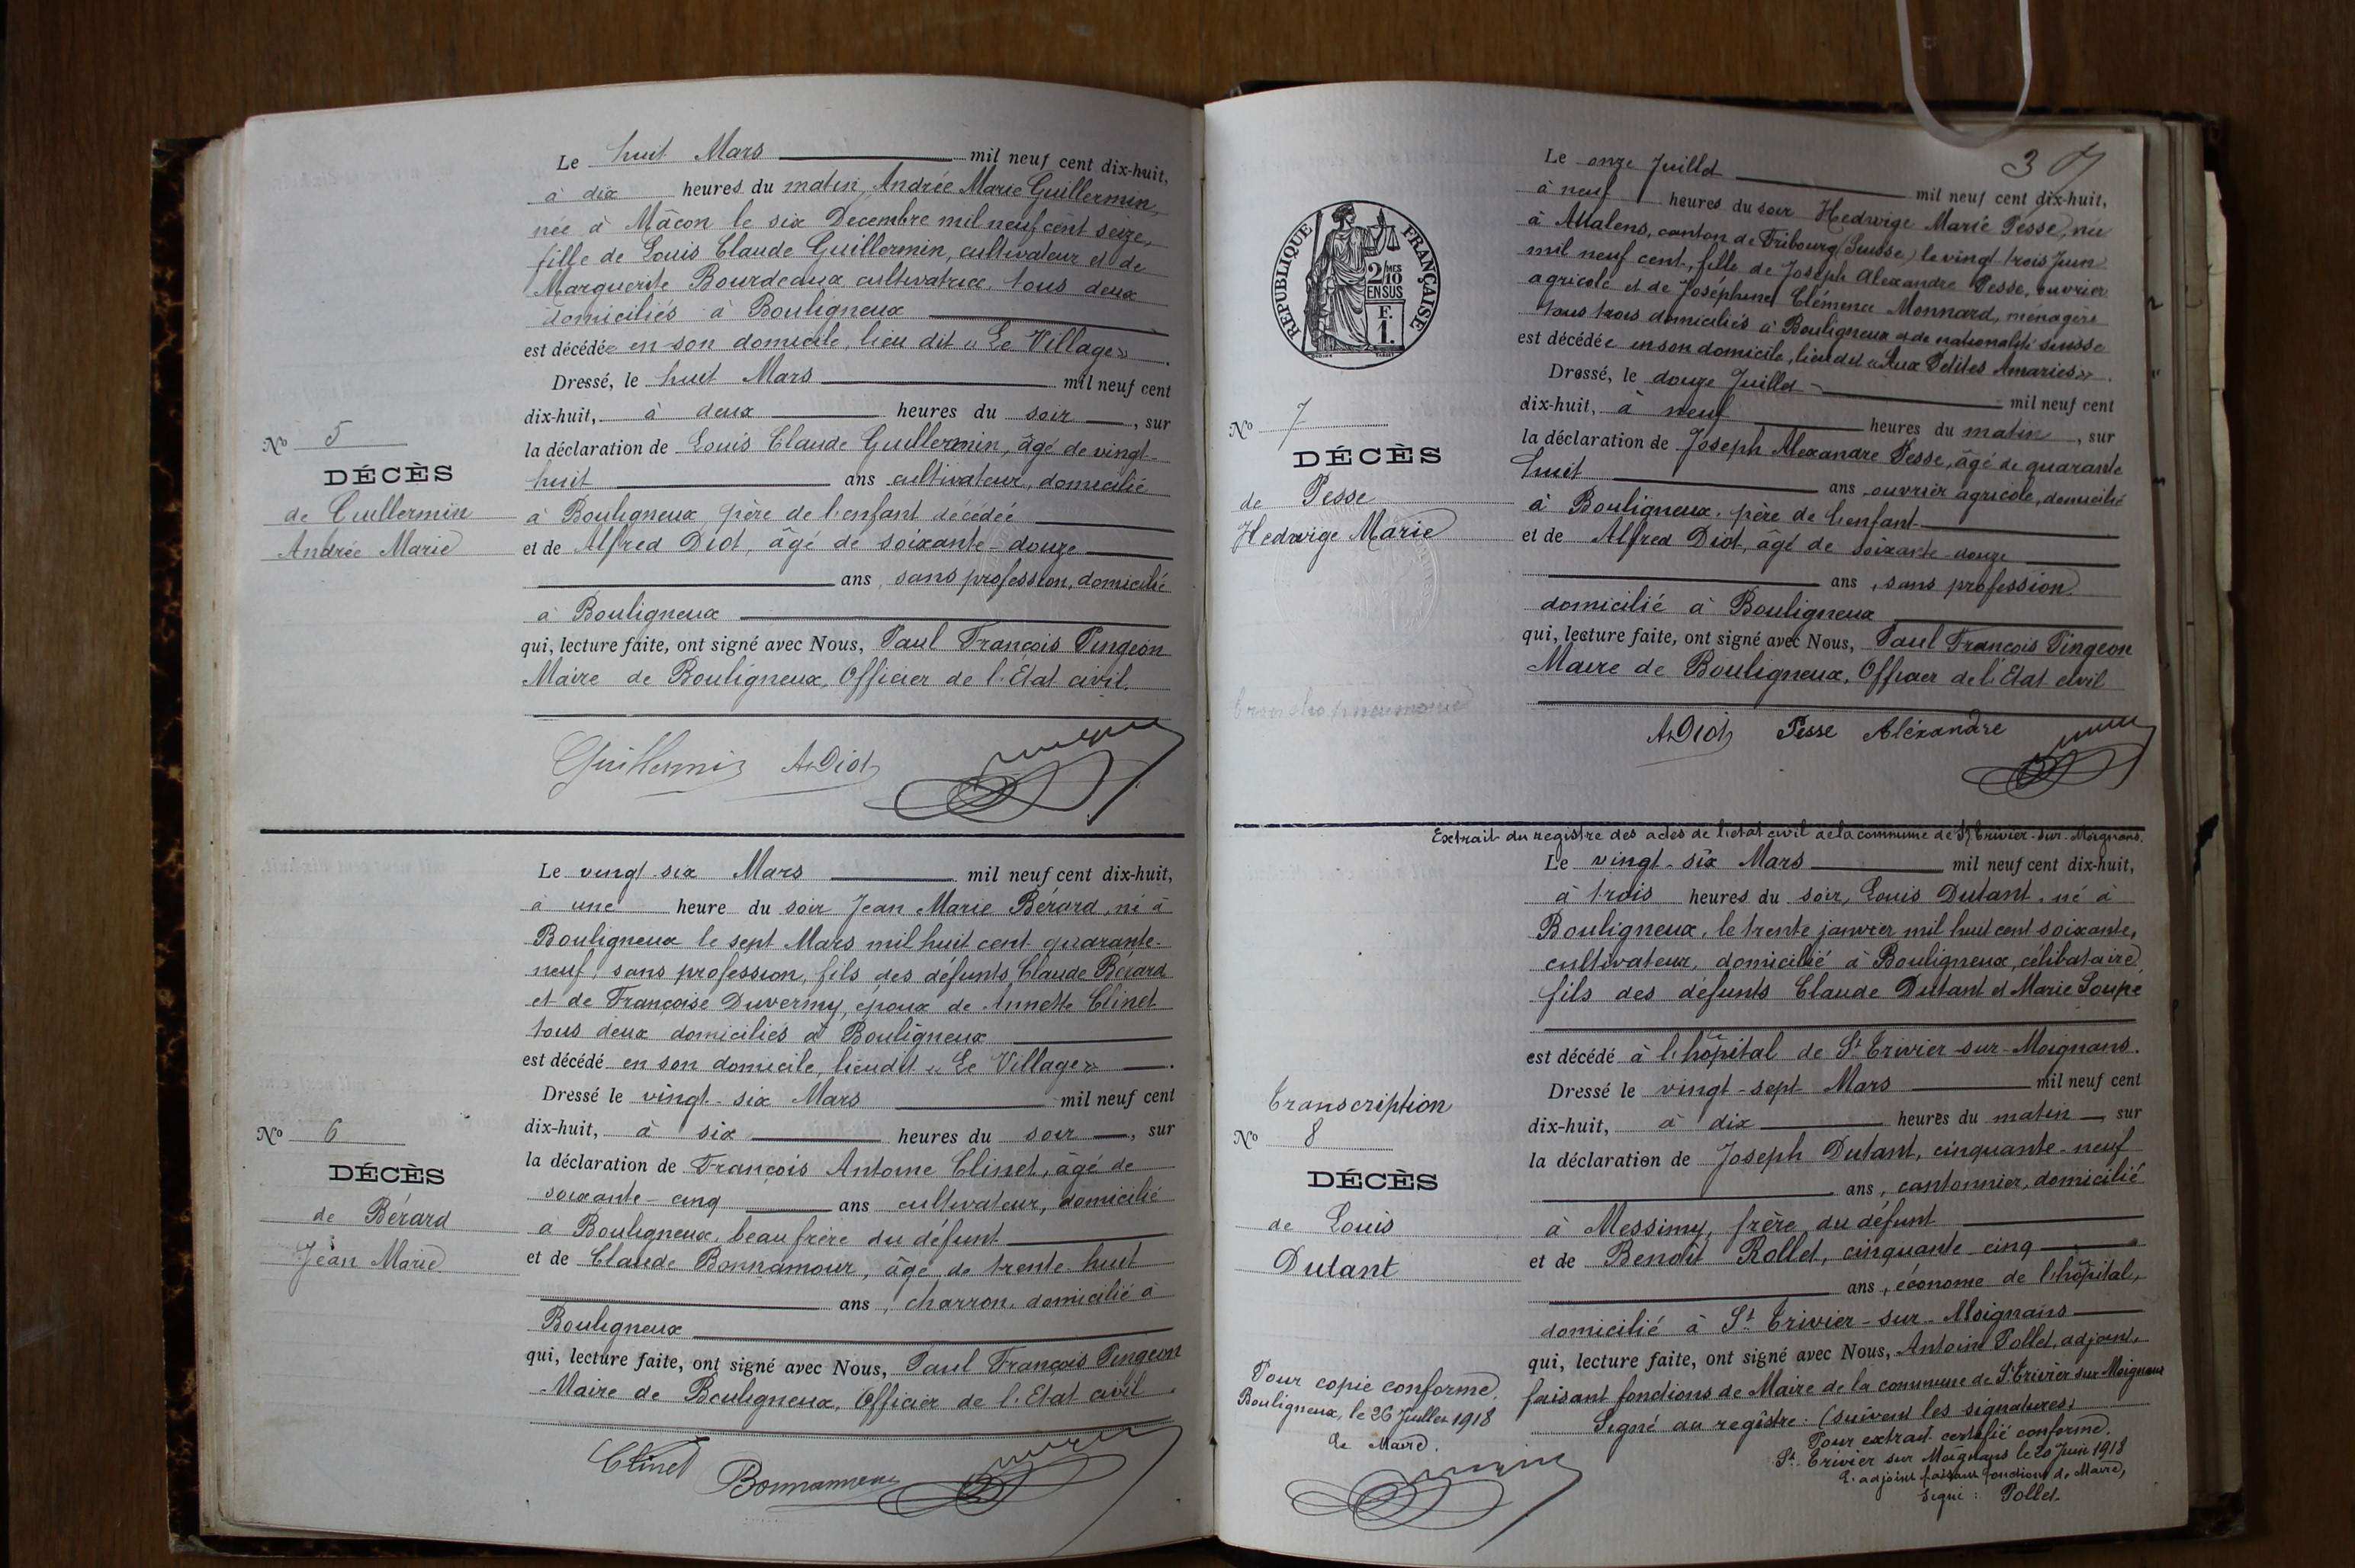 Le huit Mars mil neuf cent dix-huit,
à dix heures du matin, Andrée Marie Guillermin,
née à Mâcon le six Décembre mil neuf cent seize,
fille de Louis Claude Guillermin, cultivateur et de
Marguerite Bourdeaux cultivatrice, tous deux
domiciliés à Bouligneux
est décédée en son domicile, lieu dit « Le Village ».
Dressé, le huit Mars mil neuf cent
dix-huit, à deux heures du soir, sur
la déclaration de Louis Claude Guillermin, âgé de vingt-
huit ans cultivateur, domicilié
à Bouligneux, père de l'enfant décédée
et de Alfred Diot, âgé de soixante-douze
ans, sans profession, domicilié
à Bouligneux
qui, lecture faite, ont signé avec Nous, Paul François Pingeon
Maire de Bouligneux, Officier de l'Etat civil.
Guillermin A Diot
N° 5
DÉCÈS
de Guillermin
Andrée Marie
Le vingt-six Mars mil neuf cent dix-huit,
à une heure du soir Jean Marie Bérard, né à
Bouligneux le sept Mars mil huit cent quarante-
neuf, sans profession, fils des défunts Claude Bérard
et de Françoise Duverny, époux de Annette Clinet
tous deux domiciliés à Bouligneux
est décédé en son domicile, lieudit « Le Village ».
Dressé le vingt-six Mars mil neuf cent
dix-huit, à six heures du soir, sur
la déclaration de François Antoine Clinet, âgé de
soixante-cinq ans cultivateur, domicilié
à Bouligneux, beau frère du défunt
et de Claude Bonnamour, âgé de trente-huit
ans, charron, domicilié à
Bouligneux
qui, lecture faite, ont signé avec Nous, Paul François Pingeon
Maire de Bouligneux, Officier de l'Etat civil.
Clinet Bonnamour
N° 6
DÉCÈS
de Bérard
Jean Marie
3
RÉPUBLIQUE FRANÇAISE
2/10
MES
EN SUS
F.
1.
Le onze Juillet mil neuf cent dix-huit,
à neuf heures du soir Hedwige Marie Pesse, née
à Attalens, canton de Fribourg (Suisse) le vingt trois Juin
mil neuf cent, fille de Joseph Alexandre Pesse, ouvrier
agricole et de Joséphine Clémence Monnard, ménagère
tous trois domiciliés à Bouligneux et de nationalité suisse
est décédée en son domicile, lieudit « Aux Petites Amaries ».
Dressé, le douze Juillet mil neuf cent
dix-huit, à neuf heures du matin, sur
la déclaration de Joseph Alexandre Pesse, âgé de quarante
huit ans, ouvrier agricole, domicilié
à Bouligneux, père de l'enfant
et de Alfred Diot, âgé de soixante-douze
ans, sans profession
domicilié à Bouligneux
qui, lecture faite, ont signé avec Nous, Paul François Pingeon
Maire de Bouligneux, Officier de l'Etat civil
A Diot Pesse Aléxandre
N° 7
DÉCÈS
de Pesse
Hedwige Marie
Extrait du registre des actes de l'etat civil de la commune de St Trivier-sur-Moignans.
Le vingt-six Mars mil neuf cent dix-huit,
à trois heures du soir, Louis Dutant, né à
Bouligneux, le trente janvier mil huit cent soixante,
cultivateur, domicilié à Bouligneux, célibataire,
fils des défunts Claude Dutant et Marie Soupe
est décédé à l'hôpital de St Trivier-sur-Moignans.
Dressé le vingt-sept Mars mil neuf cent
dix-huit, à dix heures du matin, sur
la déclaration de Joseph Dutant, cinquante-neuf
ans, cantonnier, domicilié
à Messimy, frère du défunt
et de Benoît Rollet, cinquante-cinq
ans, économe de l'hôpital,
domicilié à St Trivier-sur-Moignans
qui, lecture faite, ont signé avec Nous, Antoine Pollet, adjoint,
faisant fonctions de Maire de la commune de St Trivier sur Moignans
Signé au registre : (suivent les signatures)
Pour extrait certifié conforme.
St Trivier sur Moignans le 20 Juin 1918
L'adjoint faisant fonctions de Maire,
Signé : Pollet
Transcription
N° 8
DÉCÈS
de Louis
Dutant
Pour copie conforme.
Bouligneux, le 26 Juillet 1918
Le Maire.